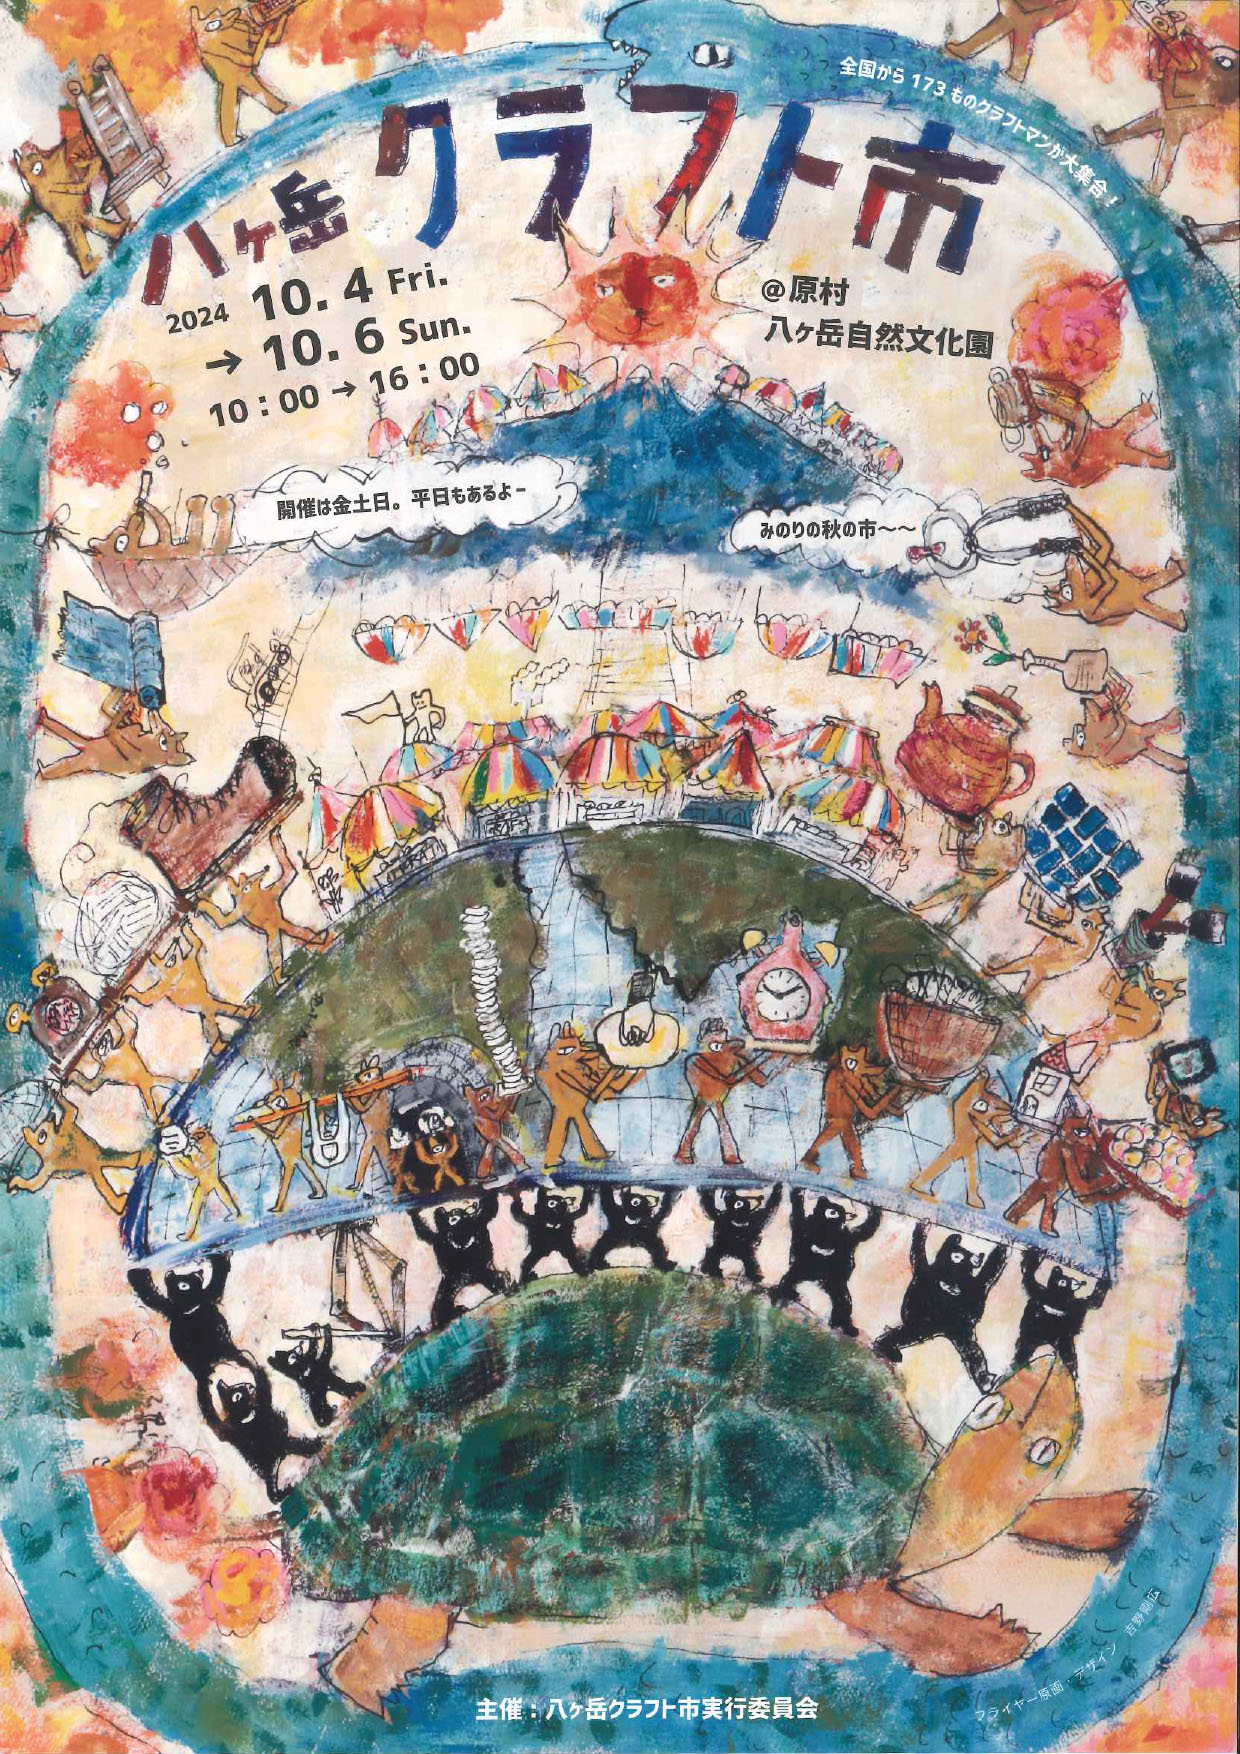 全国から173ものクラフトマンが大集合！
八ヶ岳 クラフト市
2024 10.4 Fri.
→ 10.6 Sun.
10：00 → 16：00
@原村
八ヶ岳自然文化園
開催は金土日。平日もあるよー
みのりの秋の市〜〜
フライヤー原画・デザイン 吉野剛広
主催：八ヶ岳クラフト市実行委員会